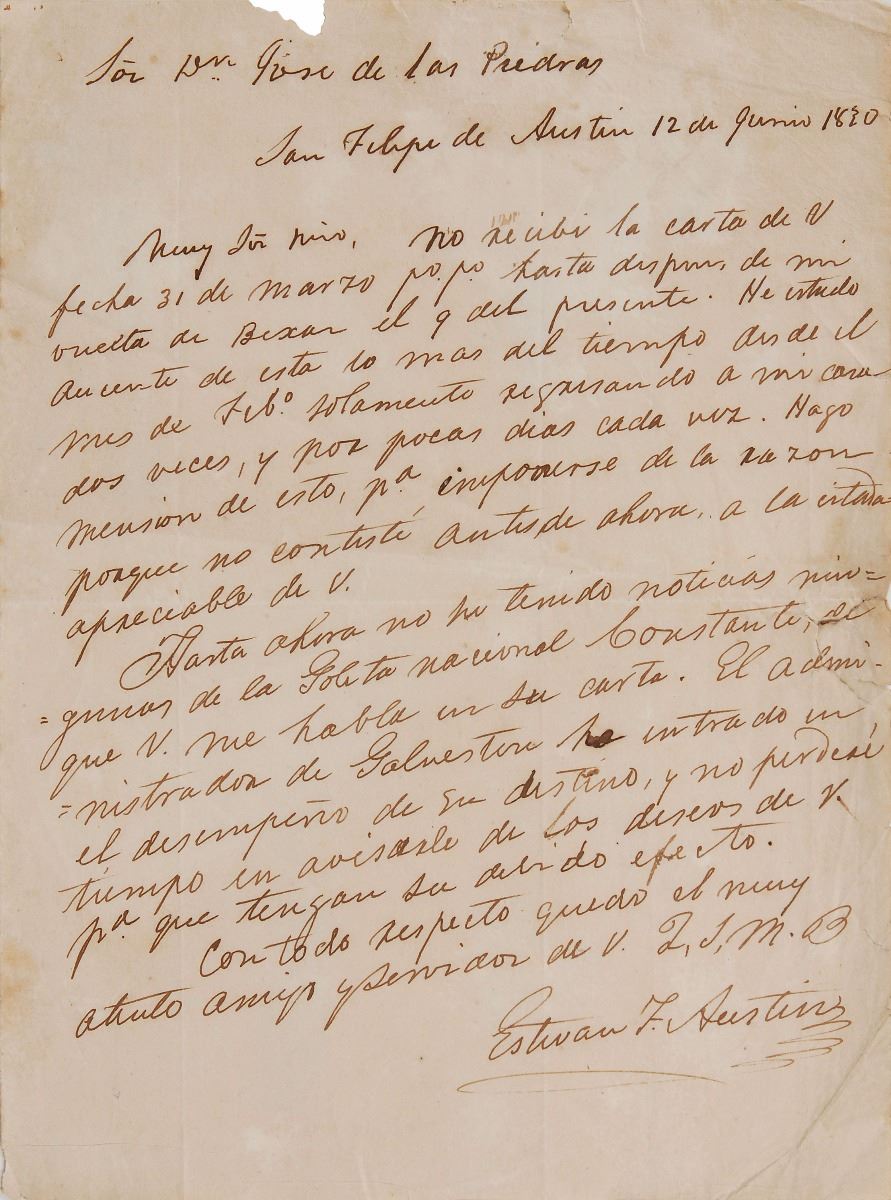 Sōr Dn. Jose de las Piedras
San Felipe de Austin 12 de Junio 1830
Muy Sōr mio, no recibi la carta de V
fecha 31 de Marzo po. po. hasta despues de mi
vuelta de Bexar el 9 del presente. He estado
aucente de esta lo mas del tiempo desde el
mes de Feb.º solamente regresando a mi casa
dos veces, y por pocas dias cada vez. Hago
mension de esto, pª imponerse de la razon
porque no contesté antes de ahora, a la citada
apreciable de V.
Hasta ahora no he tenido noticias nin=
=gunas de la Goleta nacional Constante, de
que V. me habla en su carta. El admi-
=nistrador de Galveston ha entrado en
el desempeño de su destino, y no perderé
tiempo en avisarle de los deseos de V.
pª. que tengan su debido efecto.
Con todo respecto quedo el muy
atento amigo y servidor de V. Q, S, M. B
Estevan F. Austin